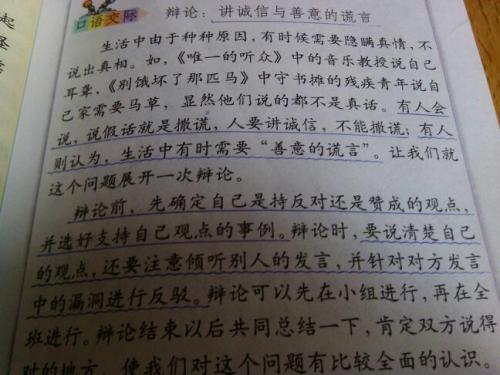 口语交际
辩论：讲诚信与善意的谎言
生活中由于种种原因，有时候需要隐瞒真情，不
说出真相。如，《唯一的听众》中的音乐教授说自己
耳聋，《别饿坏了那匹马》中守书摊的残疾青年说自
己家需要马草，显然他们说的都不是真话。有人会
说，说假话就是撒谎，人要讲诚信，不能撒谎；有人
则认为，生活中有时需要“善意的谎言”。让我们就
这个问题展开一次辩论。
辩论前，先确定自己是持反对还是赞成的观点，
并选好支持自己观点的事例。辩论时，要说清楚自己
的观点，还要注意倾听别人的发言，并针对对方发言
中的漏洞进行反驳。辩论可以先在小组进行，再在全
班进行。辩论结束以后共同总结一下，肯定双方说得
对的地方，使我们对这个问题有比较全面的认识。